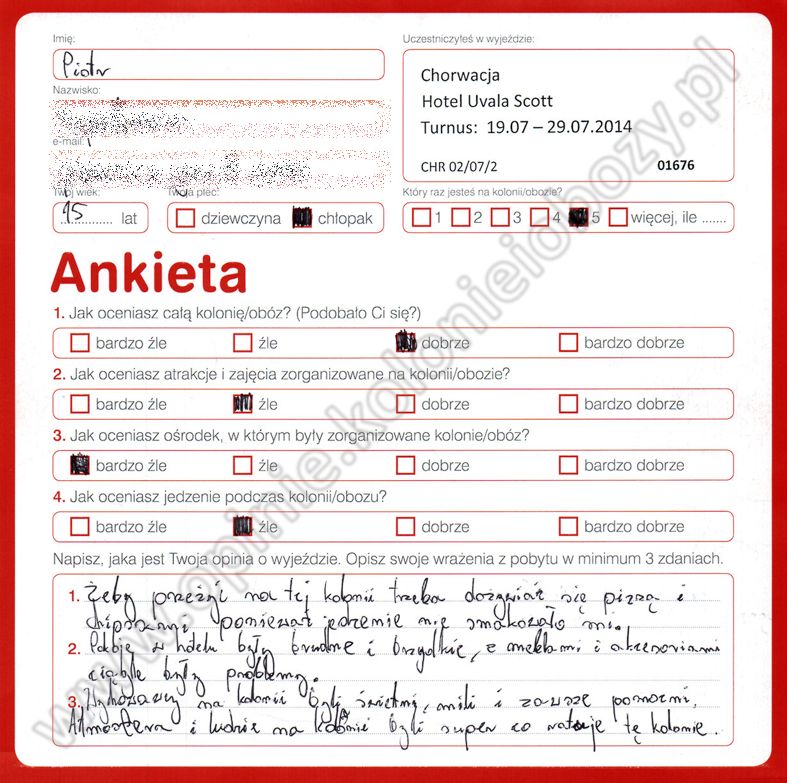 Imię:
Piotr
Nazwisko:
e-mail:
Twój wiek:
15 lat
Twoja płeć:
dziewczyna chłopak
Uczestniczyłeś w wyjeździe:
Chorwacja
Hotel Uvala Scott
Turnus: 19.07 – 29.07.2014
CHR 02/07/2 01676
Który raz jesteś na kolonii/obozie?
1 2 3 4 5 więcej, ile .......
Ankieta
1. Jak oceniasz całą kolonię/obóz? (Podobało Ci się?)
bardzo źle źle dobrze bardzo dobrze
2. Jak oceniasz atrakcje i zajęcia zorganizowane na kolonii/obozie?
bardzo źle źle dobrze bardzo dobrze
3. Jak oceniasz ośrodek, w którym były zorganizowane kolonie/obóz?
bardzo źle źle dobrze bardzo dobrze
4. Jak oceniasz jedzenie podczas kolonii/obozu?
bardzo źle źle dobrze bardzo dobrze
Napisz, jaka jest Twoja opinia o wyjeździe. Opisz swoje wrażenia z pobytu w minimum 3 zdaniach.
1. Żeby przeżyć na tej kolonii trzeba dożywiać się pizzą i
chipsami, ponieważ jedzenie nie smakowało mi.
2. Pokoje w hotelu były brudne i brzydkie, z meblami i akcesoriami
ciągle były problemy.
3. Wychowawcy na kolonii byli świetni, mili i zawsze pomocni.
Atmosfera i ludzie na kolonii byli super co ratuje tę kolonie.
www.opinie.kolonieiobozy.pl